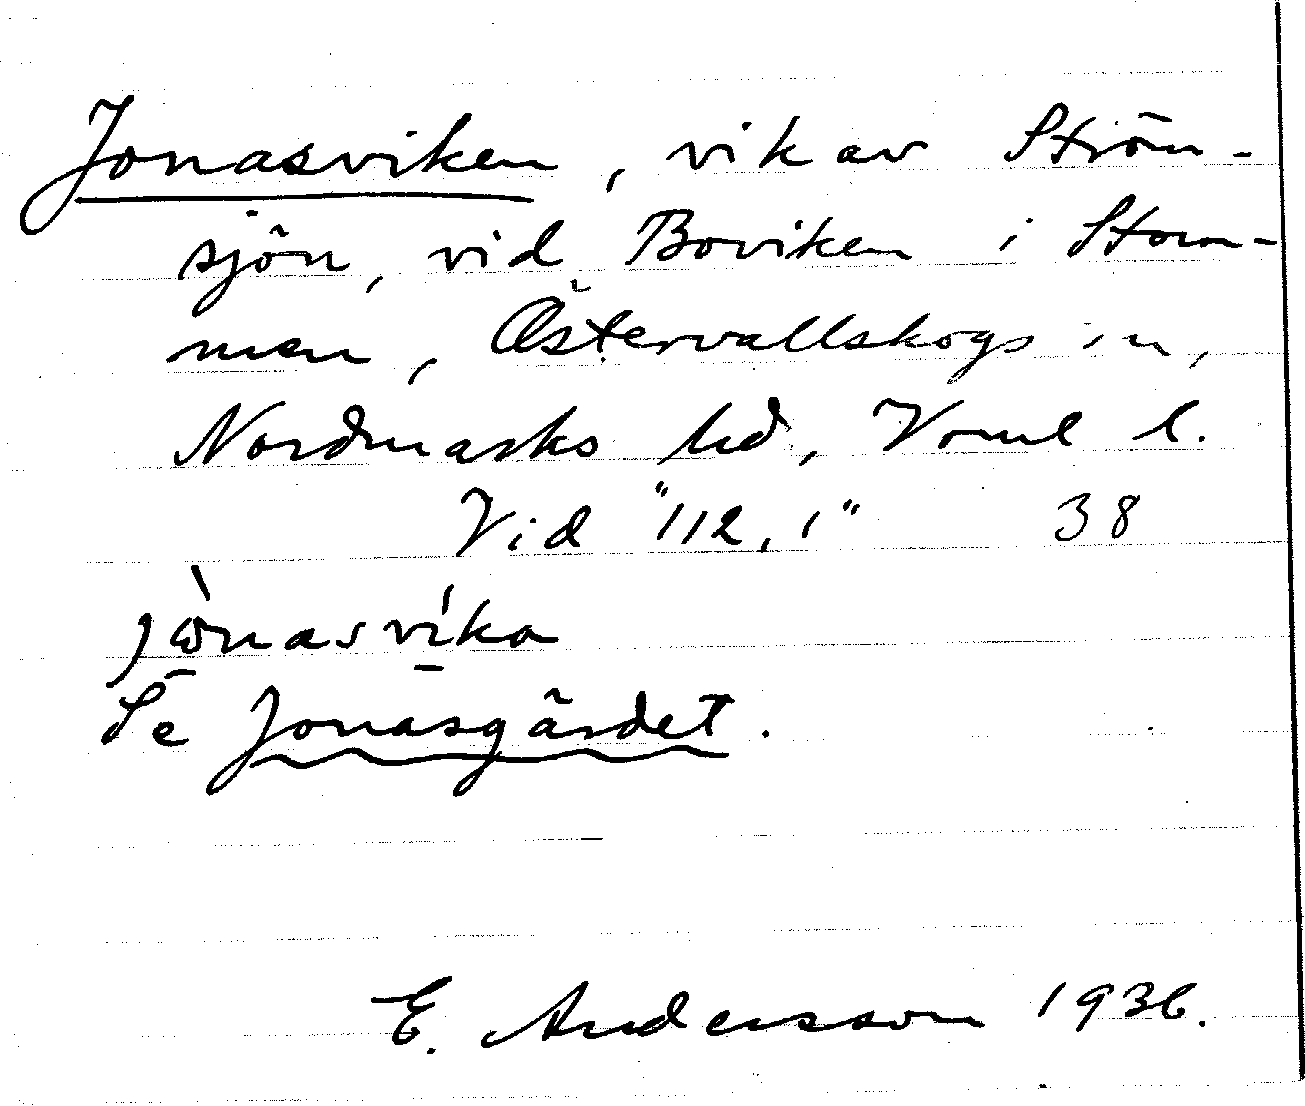 Jonasviken, vik av Strön-
sjön, vid Boviken i Stom-
men, Östervallskogs sn,
Nordmarks hd, Vrml l.
Vid "112,1" 38
jònasvíka
Se Jonasgärdet.
E. Andersson 1936.